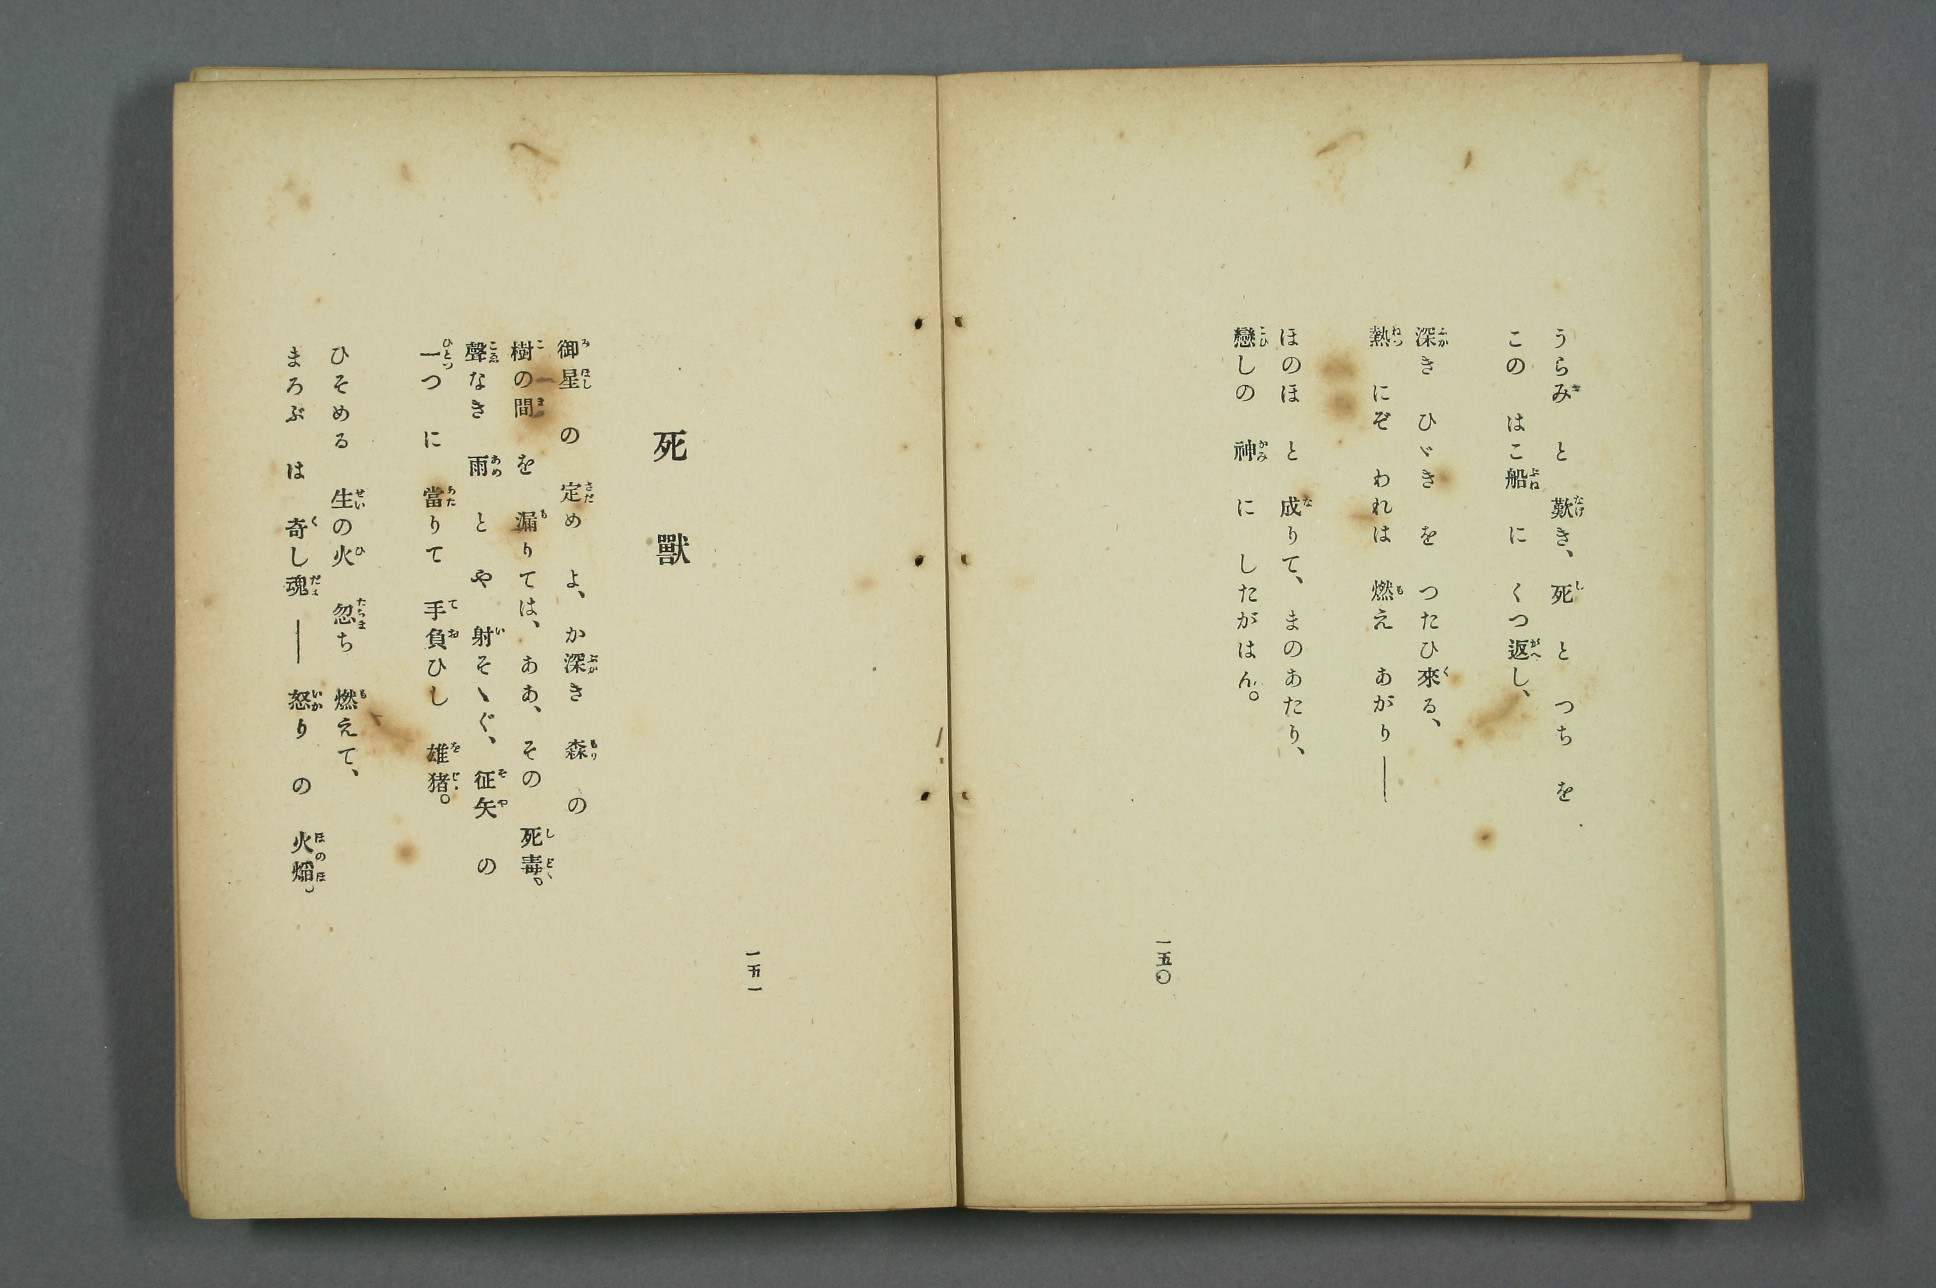 うらみ と 歎き、 死 と つち を
この はこ船 に くつ返し、
深き ひゞき を つたひ來る、
熱 にぞ われは 燃え あがり ――
ほのほ と 成りて、 まのあたり、
戀しの 神 に したがはん。
一五〇
死獸
御星 の 定め よ、 か深き 森 の
樹の間 を 漏りては、 ああ、 その 死毒。
聲なき 雨 と や 射そゝぐ、 征矢 の
一つ に 當りて 手負ひし 雄猪。
ひそめる 生の火 忽ち 燃えて、
まろぶ は 奇し魂 ―― 怒り の 火焔。
一五一